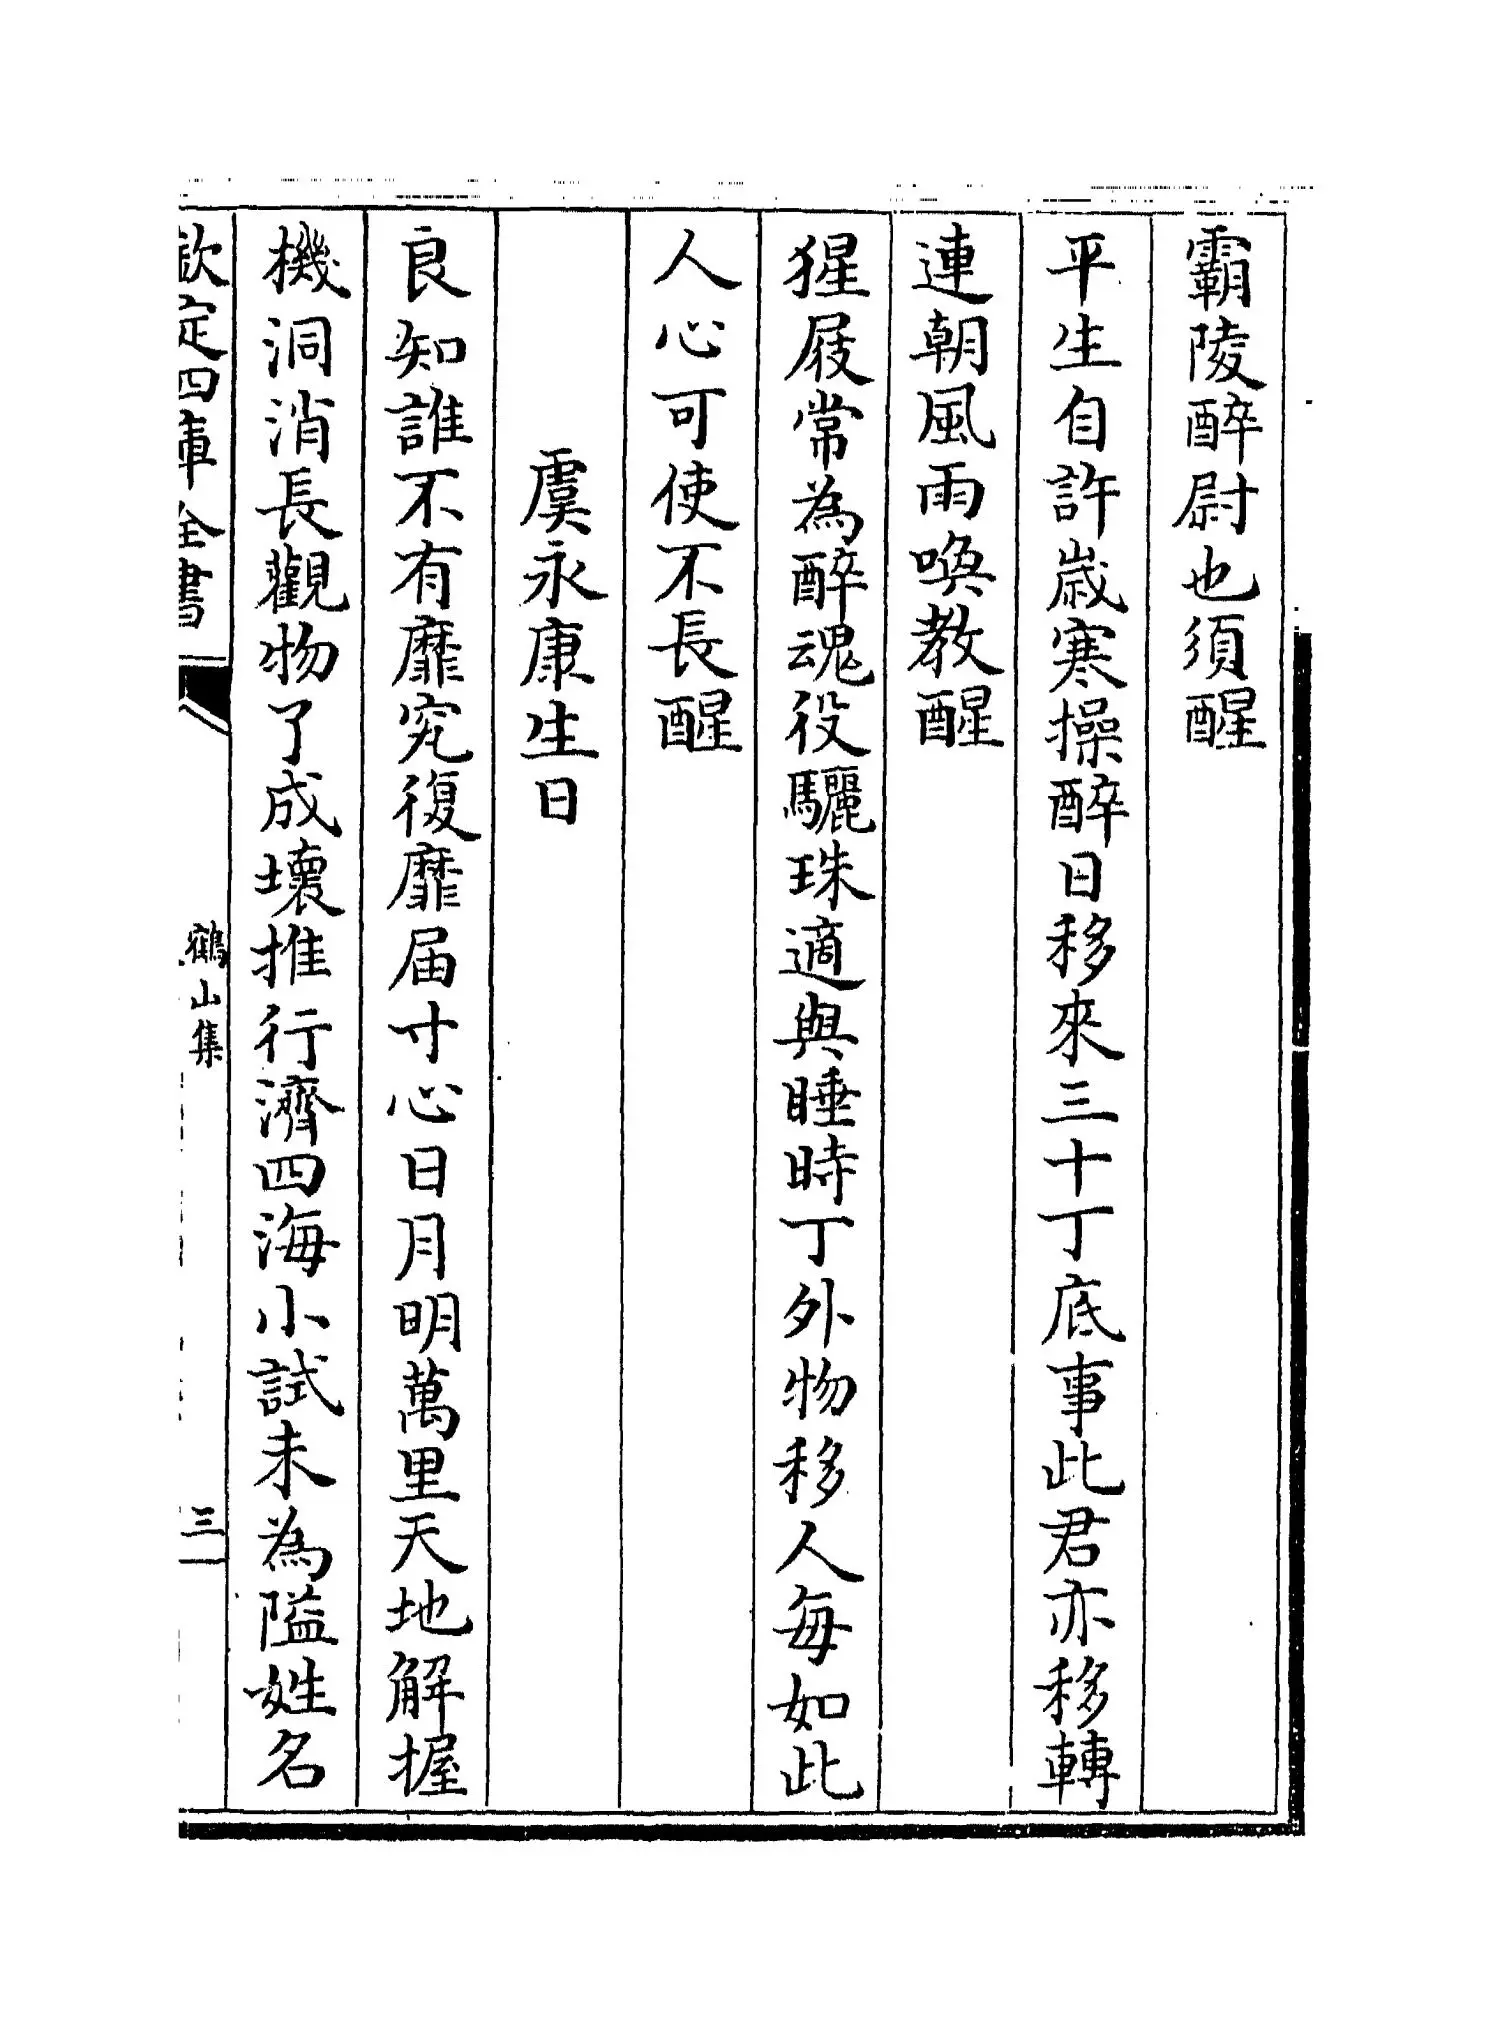 霸陵醉尉也須醒
平生自許歳寒操醉日移來三十丁底事此君亦移轉
連朝風雨喚教醒
猩屐常為醉魂役驪珠適與睡時丁外物移人每如此
人心可使不長醒
虞永康生日
良知誰不有靡究復靡届寸心日月明萬里天地解握
機洞消長觀物了成壞推行濟四海小試未為隘姓名
欽定四庫全書
鶴山集
三